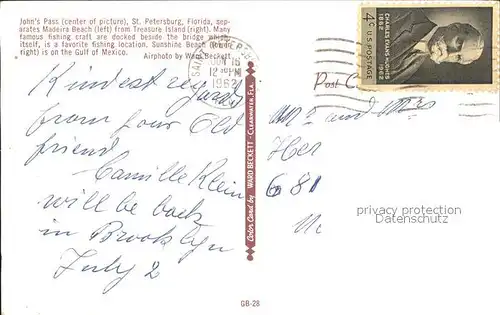 John's Pass (center of picture), St. Petersburg, Florida, sep-
arates Madeira Beach (left) from Treasure Island (right). Many
famous fishing craft are docked beside the bridge which,
itself, is a favorite fishing location. Sunshine Beach (lower
right) is on the Gulf of Mexico.
Airphoto by Ward Beckett
Kindest regards
from your old
friend
Camille Klein
will be back
in Brooklyn
July 2
JUN 15
12 PM
1962
Color Card by WARD BECKETT - CLEARWATER, FLA.
GB-28
Post C
4¢ U.S. POSTAGE
CHARLES EVANS HUGHES
1862 1962
Mr and Mrs
Her
681
protection privacy
Datenschutz